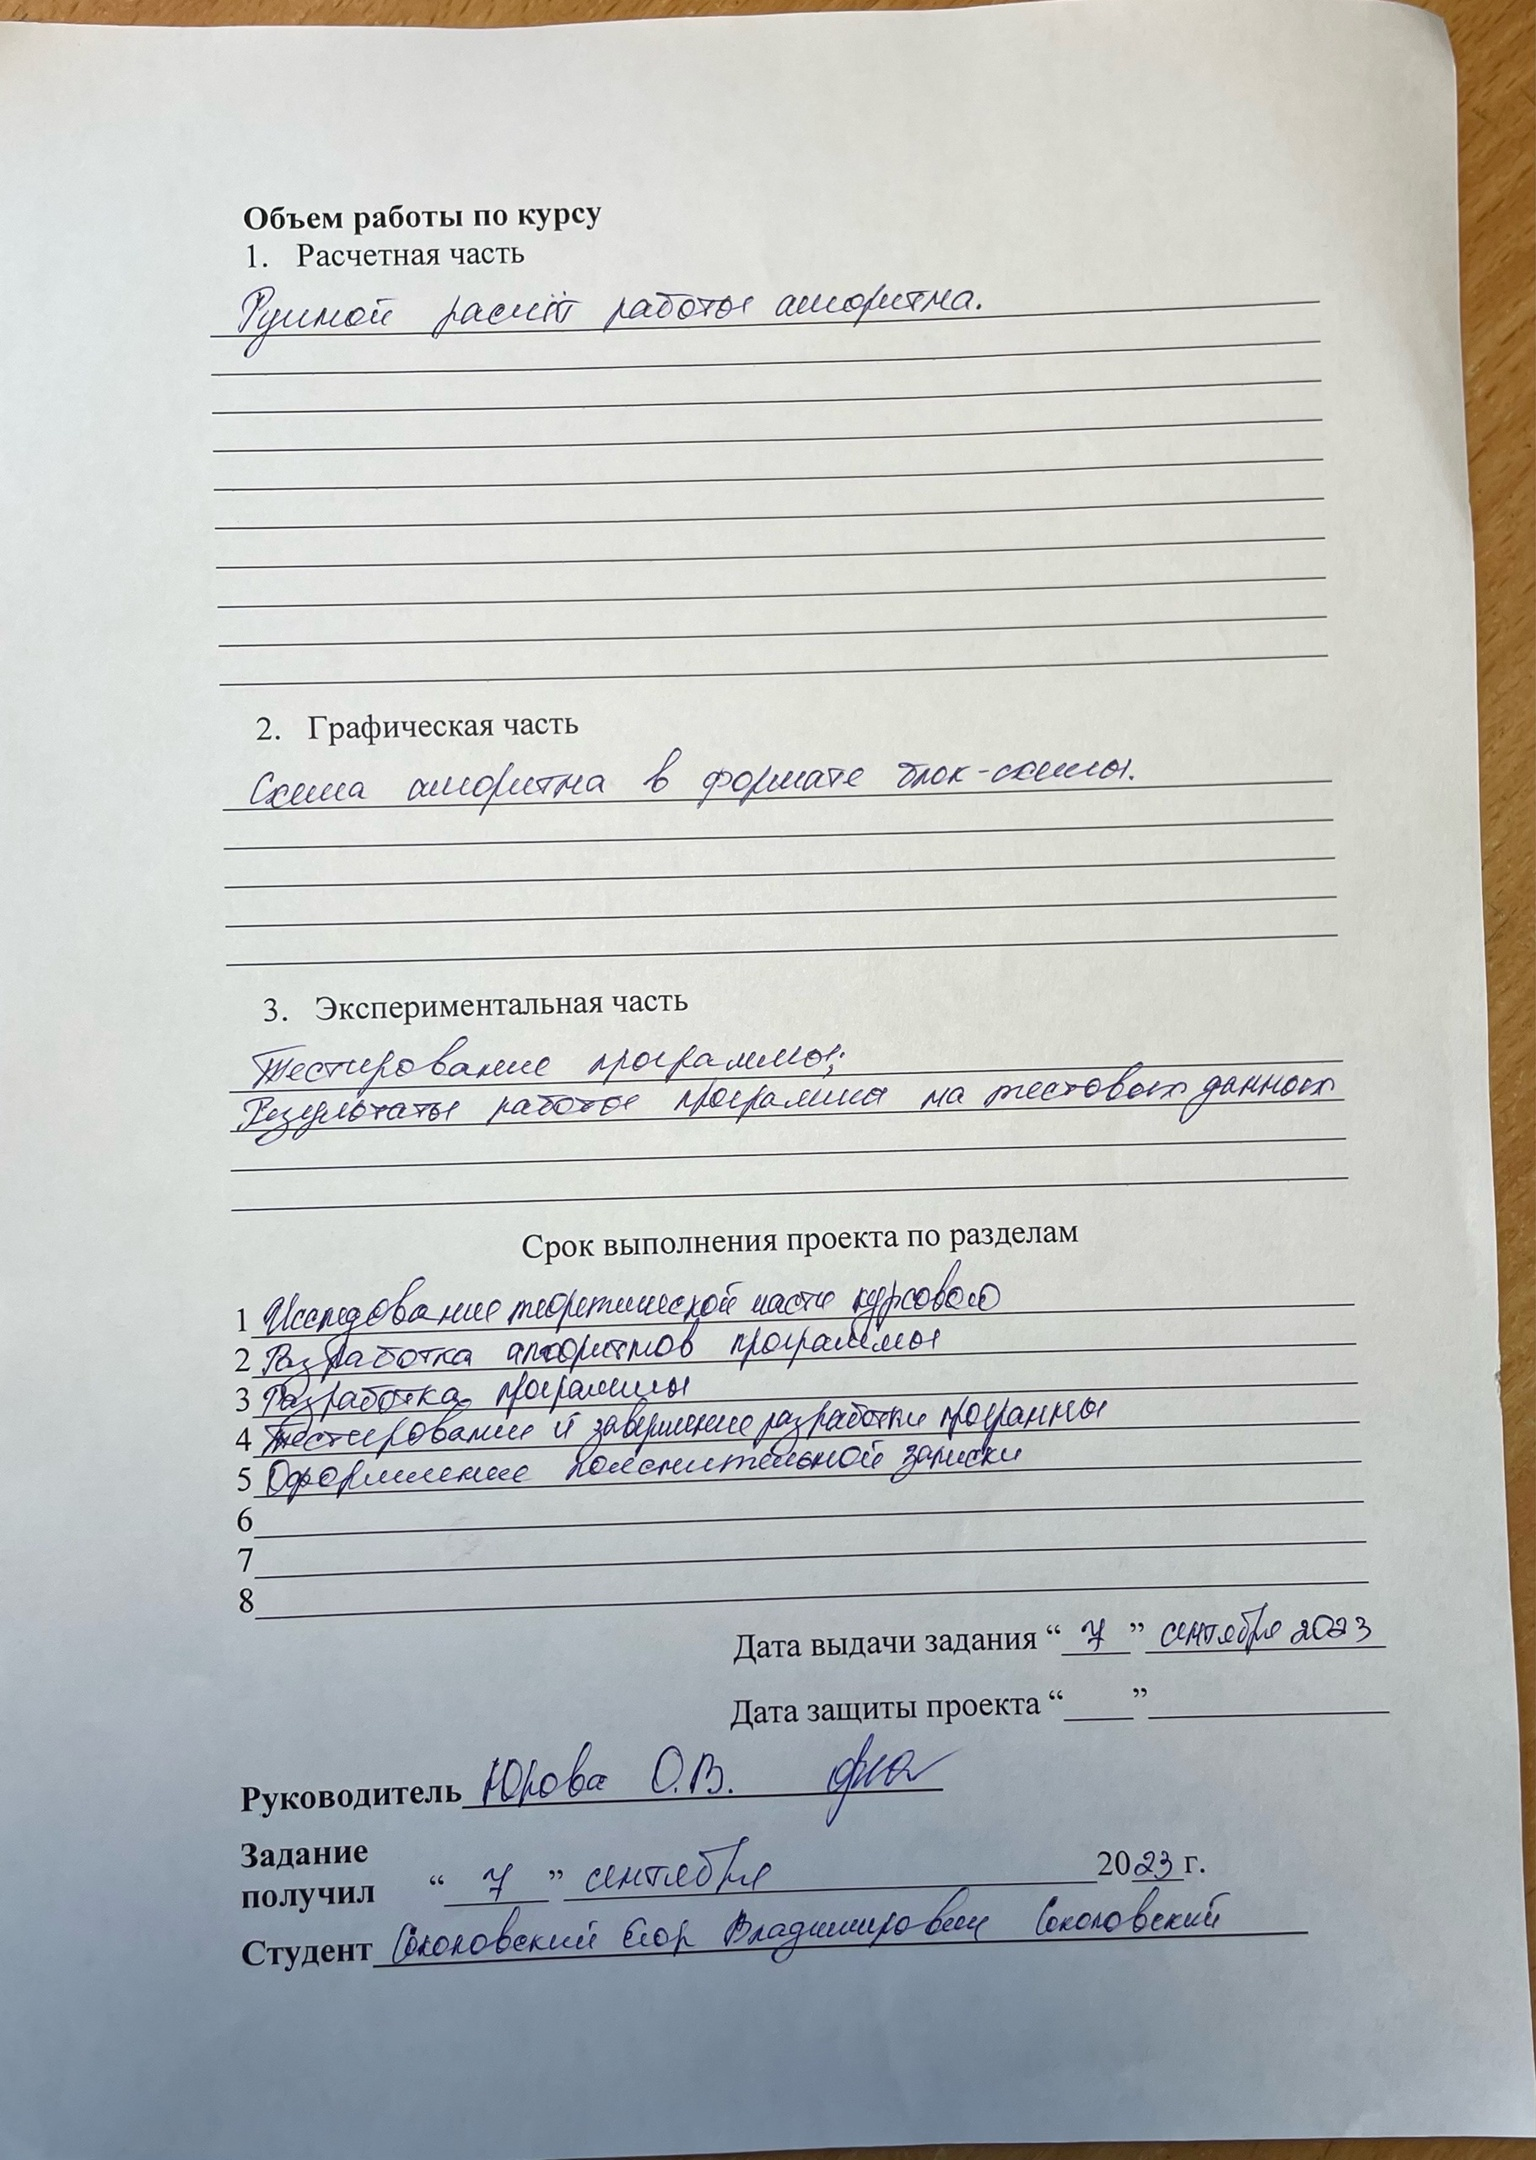 Объем работы по курсу
1. Расчетная часть
Ручной расчёт работы алгоритма.
2. Графическая часть
Схема алгоритма в формате блок-схемы.
3. Экспериментальная часть
Тестирование программы;
Результаты работы программы на тестовых данных
Срок выполнения проекта по разделам
1 Исследование теоретической части курсового
2 Разработка алгоритмов программы
3 Разработка программы
4 Тестирование и завершение разработки программы
5 Оформление пояснительной записки
6
7
8
Дата выдачи задания “ 7 ” сентября 2023
Дата защиты проекта “____”
Руководитель Юрова О.В.
Задание
получил “ 7 ” сентября 2023 г.
Студент Соколовский Егор Владимирович Соколовский